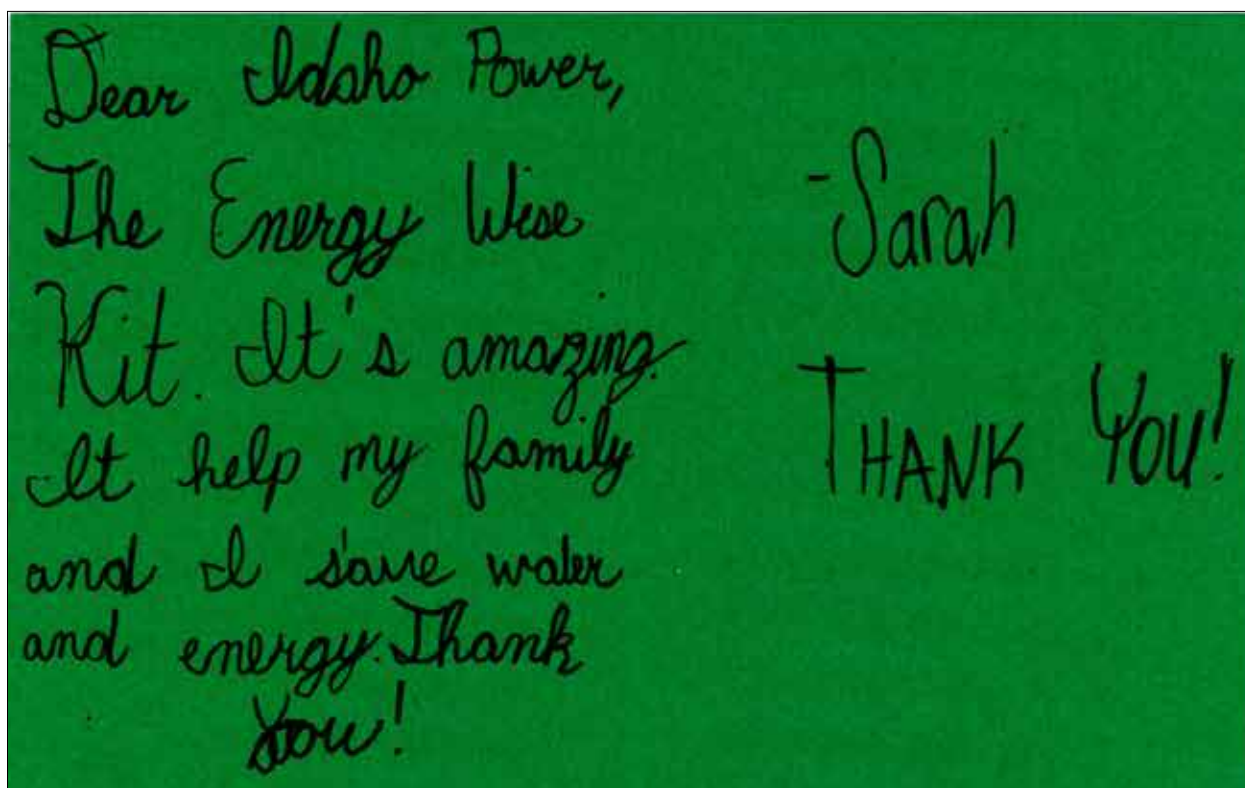 Dear Idaho Power,
The Energy Wise
Kit. It's amazing.
It help my family
and I save water
and energy. Thank
You!
-Sarah
THANK YOU!